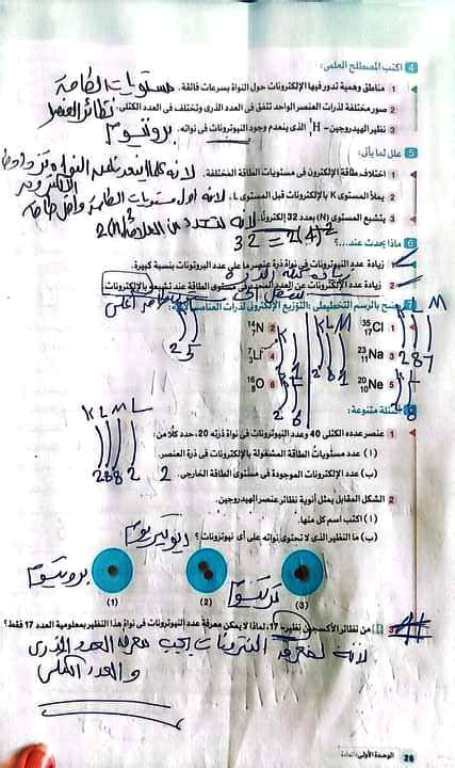 4 اكتب المصطلح العلمى:
1 مناطق وهمية تدور فيها الإلكترونات حول النواة بسرعات فائقة. مستويات الطاقة
2 صور مختلفة لذرات العنصر الواحد تتفق فى العدد الذرى وتختلف فى العدد الكتلى. نظائر العنصر
3 نظير الهيدروجين – ¹₁H الذى ينعدم وجود النيوترونات فى نواته. بروتيوم
5 علل لما يأتى:
1 اختلاف طاقة الإلكترون فى مستويات الطاقة المختلفة. لانه كلما ابتعد عن النواة تزداد طاقة الالكترون
2 يملأ المستوى K بالإلكترونات قبل المستوى L. لانه اول مستويات الطاقة واقل طاقة
3 يتشبع المستوى (N) بعدد 32 إلكترونًا. لانه تتحدد من العلاقة 2(n)²
32 = 2(4)²
6 ماذا يحدث عند...؟
1 زيادة عدد النيوترونات فى نواة ذرة عنصر ما على عدد البروتونات بنسبة كبيرة.
زيادة كتلة الذرة
2 زيادة عدد الإلكترونات عن العدد المحدد فى مستوى الطاقة عند تشبعه بالإلكترونات.
التوزيع الإلكترونى لذرات العناصر
1 ³⁵₁₇Cl K L M 2 8 7
2 ¹⁴₇N 2 5
3 ²³₁₁Na K L M 2 8 1
4 ⁷₃Li 2 1
5 ²⁰₁₀Ne K L 2 8
6 ¹⁶₈O 2 6
أسئلة متنوعة:
1 عنصر عدده الكتلى 40 وعدد النيوترونات فى نواة ذرته 20، حدد كلًا من:
(١) عدد مستويات الطاقة المشغولة بالإلكترونات فى ذرة العنصر.
(ب) عدد الإلكترونات الموجودة فى مستوى الطاقة الخارجى. 2
K L M L
2 8 8 2
2 الشكل المقابل يمثل أنوية نظائر عنصر الهيدروجين.
(١) اكتب اسم كل منها.
(ب) ما النظير الذى لا تحتوى نواته على أى نيوترونات ؟ ديوتيريوم
بروتيوم
تريتيوم
(1) (2) (3)
3 من نظائر الأكسجين نظير– 17، لماذا لا يمكن معرفة عدد النيوترونات فى نواة هذا النظير بمعلومية العدد 17 فقط؟
لانه لمعرفة النترونات يجب معرفة العدد الذرى
والعدد الكتلى
26 الوحدة الأولى: المادة